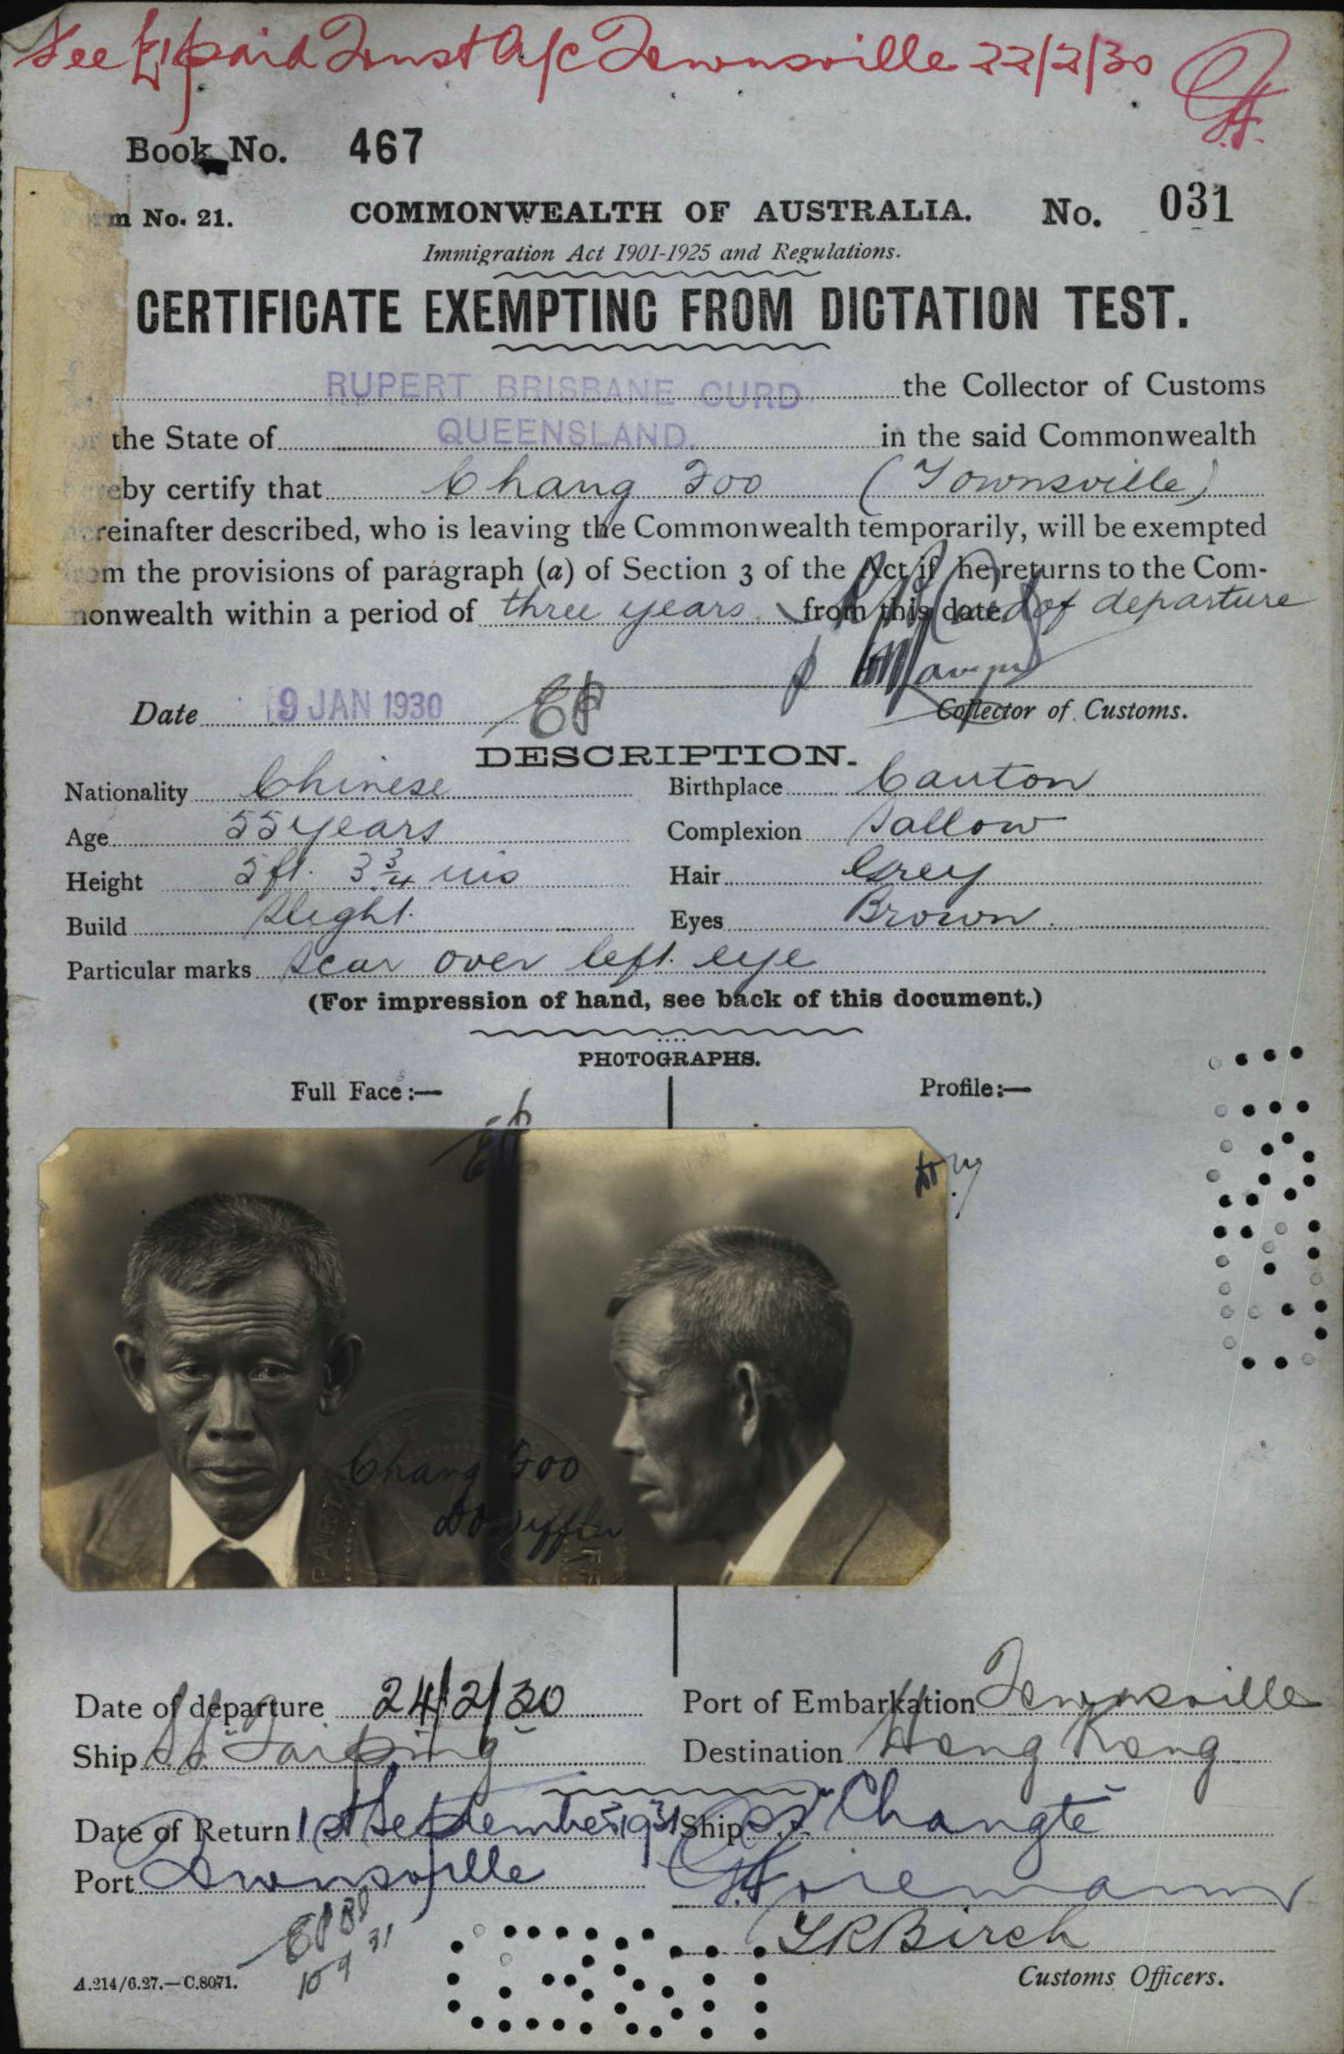 Fee £1 paid Trust A/c Townsville 22/2/30
Book No. 467
m No. 21.
COMMONWEALTH OF AUSTRALIA. No. 031
Immigration Act 1901-1925 and Regulations.
CERTIFICATE EXEMPTING FROM DICTATION TEST.
RUPERT BRISBANE CURD the Collector of Customs
the State of QUEENSLAND. in the said Commonwealth
eby certify that Chang Foo (Townsville)
reinafter described, who is leaving the Commonwealth temporarily, will be exempted
om the provisions of paragraph (a) of Section 3 of the Act if he returns to the Com-
monwealth within a period of three years from this date of departure
Date 9 JAN 1930
Collector of Customs.
DESCRIPTION.
Nationality Chinese Birthplace Canton
Age 55 years Complexion Sallow
Height 5 ft. 3 3/4 ins Hair Grey
Build Slight. Eyes Brown.
Particular marks Scar over left eye
(For impression of hand, see back of this document.)
PHOTOGRAPHS.
Full Face:— Profile:—
Chang Foo
Date of departure 24/2/30 Port of Embarkation Townsville
Ship S.S. Taiping Destination Hong Kong
Date of Return 1st September 1931 Ship SS "Changte"
Port Townsville
YRBirch
10 9 31
A.214/6.27.—C.8071. Customs Officers.